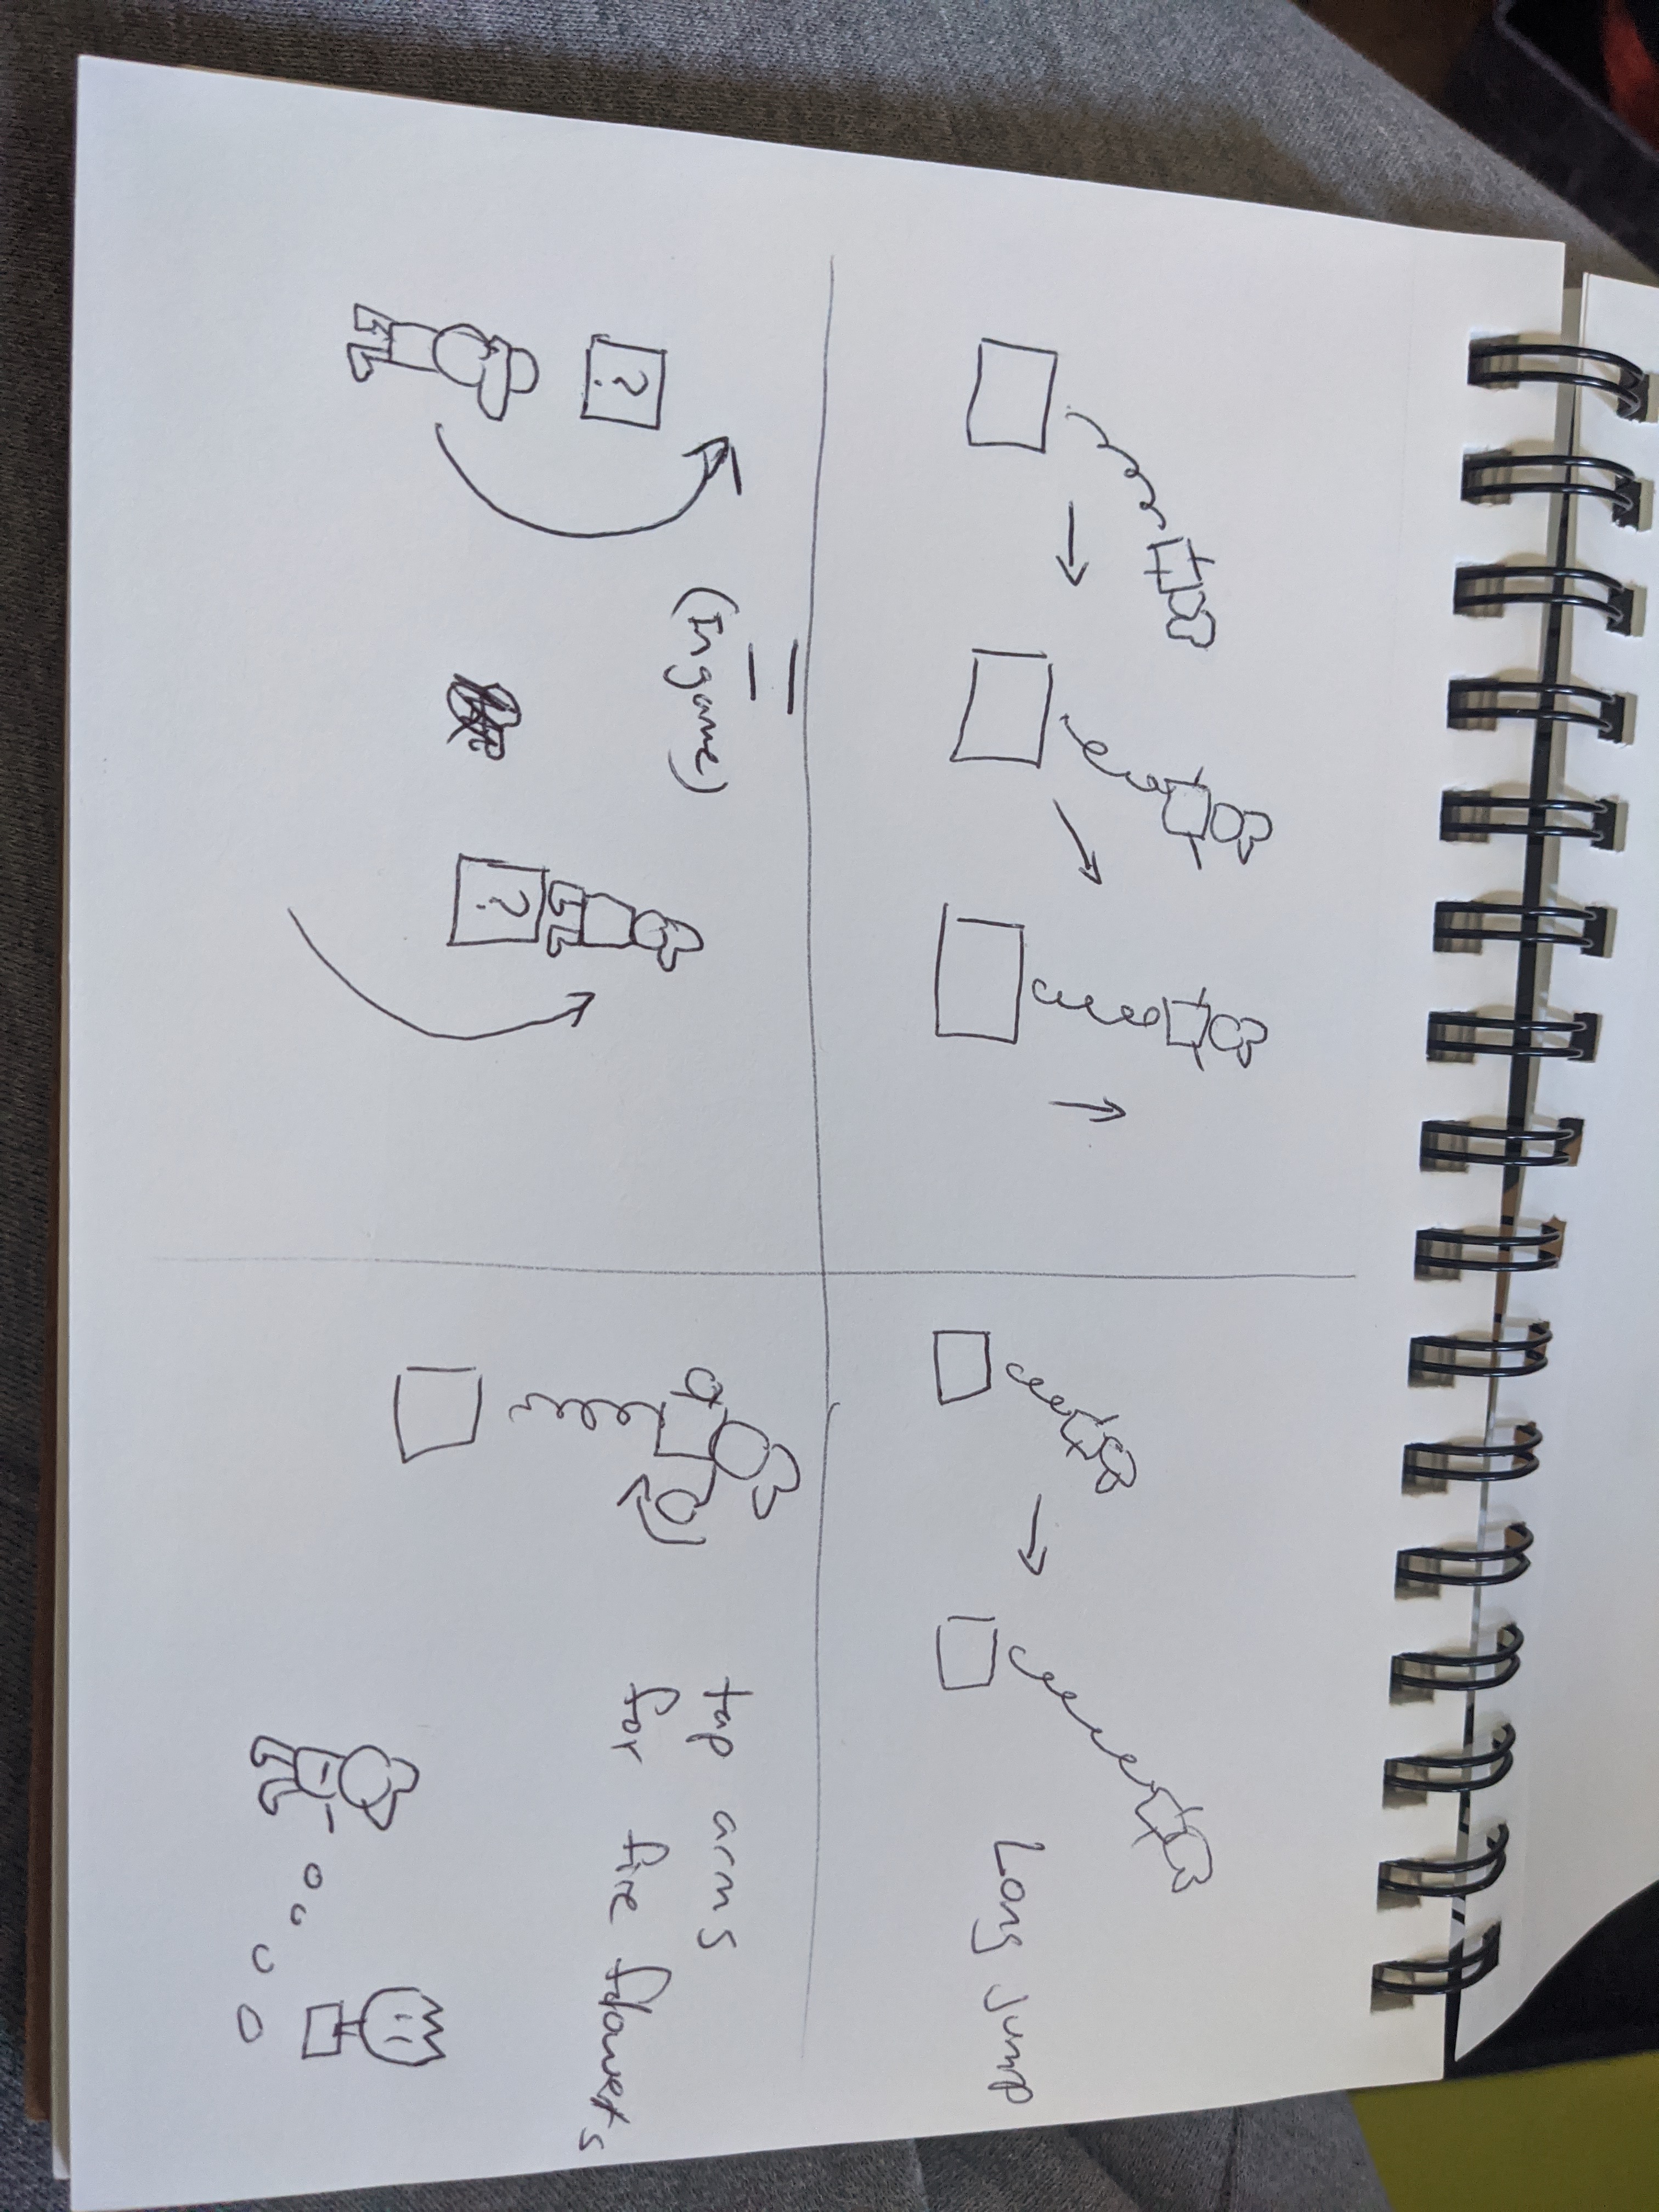 Long jump
=
(In game)
?
?
tap arms
for fire flowers